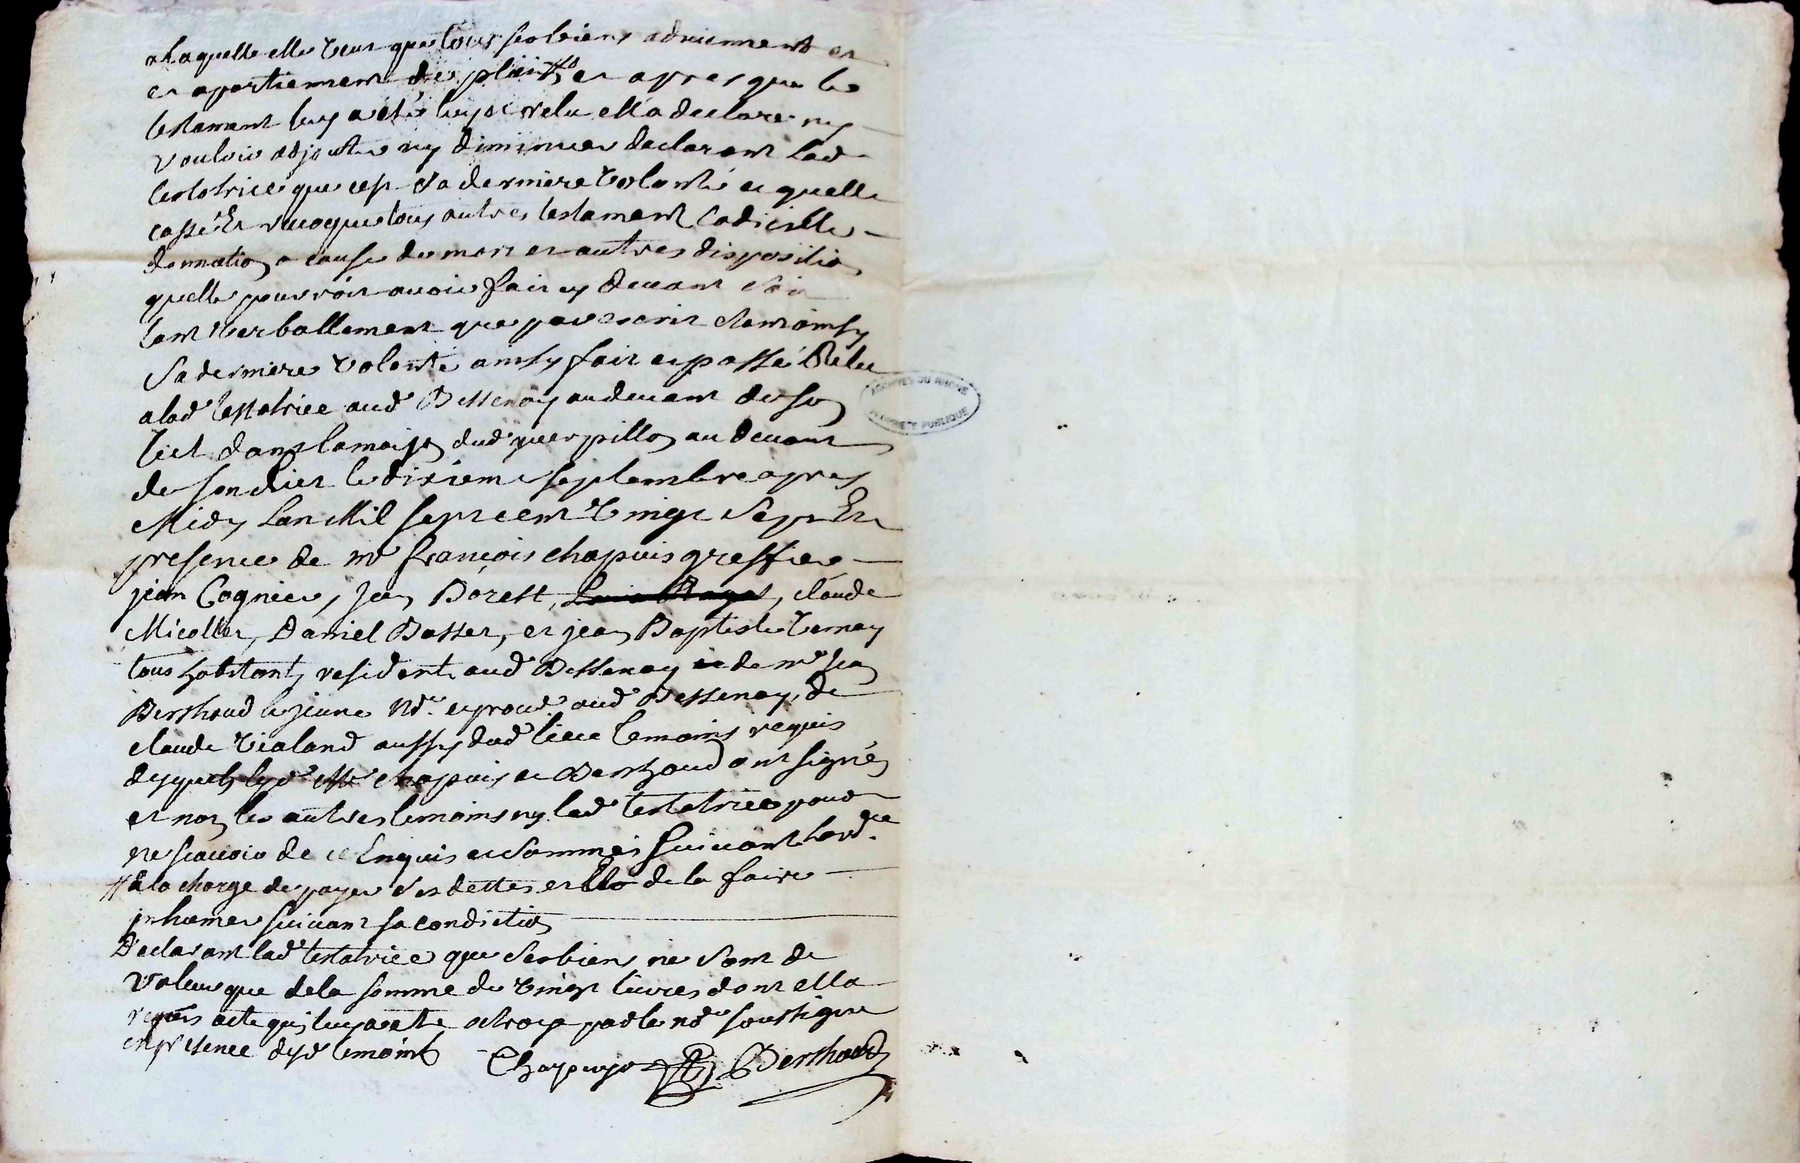 a laquelle elle veut que tous ses biens adviennent et
et apartiennent de plain # et apres que le
testamant luy a esté luy et relu ella declaré ny
vouloir adjoutter ny diminuer declarant lad
testatrice que cest sa derniere volonté et quelle
casse et revoque tous autres testament codicille
donnation a cause de mort et autres disposition
quelle pourroit avoir fait cy devant soit
tant verballement que par escrit etant ainsy
sa derniere volonté ainsy fait et passé Relu
a lad testatrice aud Bessenay au devant de son
lict dans la maison dud querpillon au devant
de son lict le dixieme septembre apres
Midy Lan Mil sept cent vingt sept En
presence de mr françois chapuis greffier
jean Cognier, Jean Dorest, claude
Micollet, Daniel Basset, et jean Baptiste Ternay
tous habitants resident aud Bessenay et de mr Jean
Berthoud le jeune Nre et proc aud Bessenay, de
claude vialand aussy dud lieu temoins requis
desquels lesd Mr chapuis et Berthoud ont signé
et non les autres temoins ny lad testatrice pour
ne scavoir de ce Enquis et sommés suivant lordce
# a la charge de payer ses dettes et de la faire
inhumer suivant sa condition
Declarant lad testatrice que ses biens ne sont de
valeur que de la somme de vingt livres dont ella
requis acte qui luy a esté octroyé par le nre soussigné
en presence desd temoins Chapuys Berthoud
ARCHIVES DU RHONE
PROPRIETE PUBLIQUE